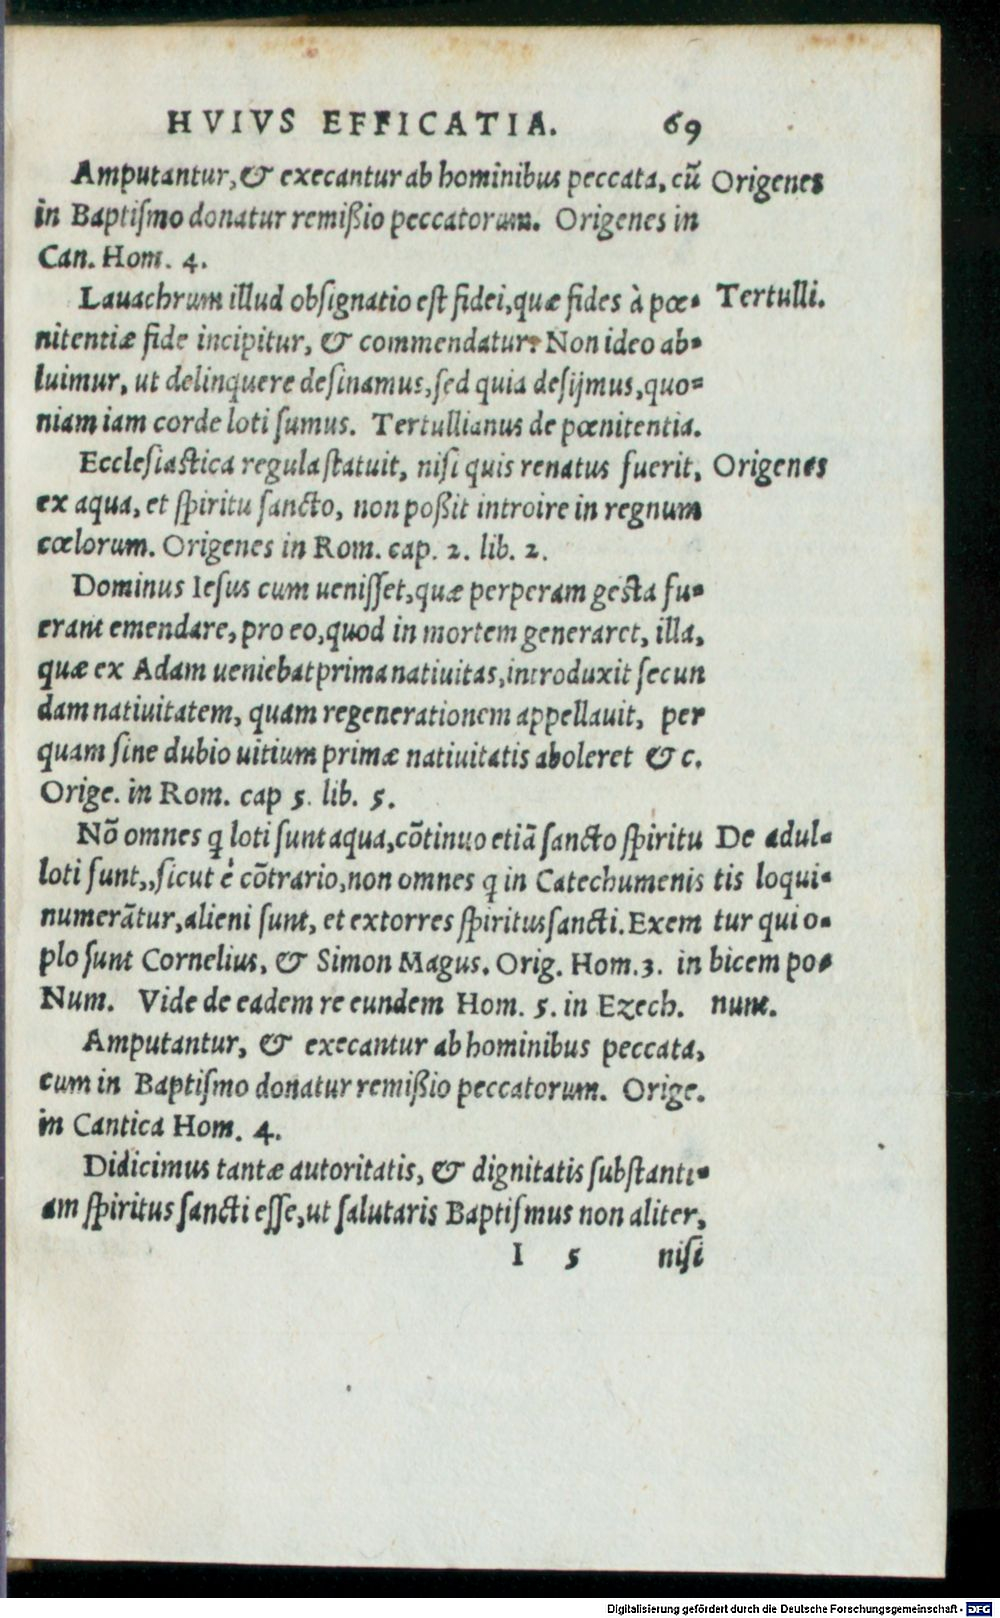 HVIVS EFFICATIA. 69
Amputantur, & execantur ab hominibus peccata, cū Origenes
in Baptiſmo donatur remiſsio peccatorum. Origenes in
Can. Hom. 4.
Lauachrum illud obſignatio eſt fidei, quæ fides à pœ- Tertulli.
nitentiæ fide incipitur, & commendatur: Non ideo ab-
luimur, ut delinquere deſinamus, ſed quia deſijmus, quo-
niam iam corde loti ſumus. Tertullianus de pœnitentia.
Eccleſiaſtica regula ſtatuit, niſi quis renatus fuerit, Origenes
ex aqua, et ſpiritu ſancto, non poſsit introire in regnum
cœlorum. Origenes in Rom. cap. 2. lib. 2.
Dominus Ieſus cum ueniſſet, quæ perperam geſta fu-
erant emendare, pro eo, quod in mortem generaret, illa,
quæ ex Adam ueniebat prima natiuitas, introduxit ſecun
dam natiuitatem, quam regenerationem appellauit, per
quam ſine dubio uitium primæ natiuitatis aboleret & c.
Orige. in Rom. cap 5. lib. 5.
Nō omnes q loti ſunt aqua, cōtinuo etiā ſancto ſpiritu De adul-
loti ſunt,, ſicut è cōtrario, non omnes q in Catechumenis tis loqui-
numerātur, alieni ſunt, et extorres ſpiritus ſancti. Exem tur qui o-
plo ſunt Cornelius, & Simon Magus. Orig. Hom. 3. in bicem po-
Num. Vide de eadem re eundem Hom. 5. in Ezech. nunt.
Amputantur, & execantur ab hominibus peccata,
cum in Baptiſmo donatur remiſsio peccatorum. Orige.
in Cantica Hom. 4.
Didicimus tantæ autoritatis, & dignitatis ſubſtanti-
am ſpiritus ſancti eſſe, ut ſalutaris Baptiſmus non aliter,
I 5 niſi
Digitalisierung gefördert durch die Deutsche Forschungsgemeinschaft - DFG